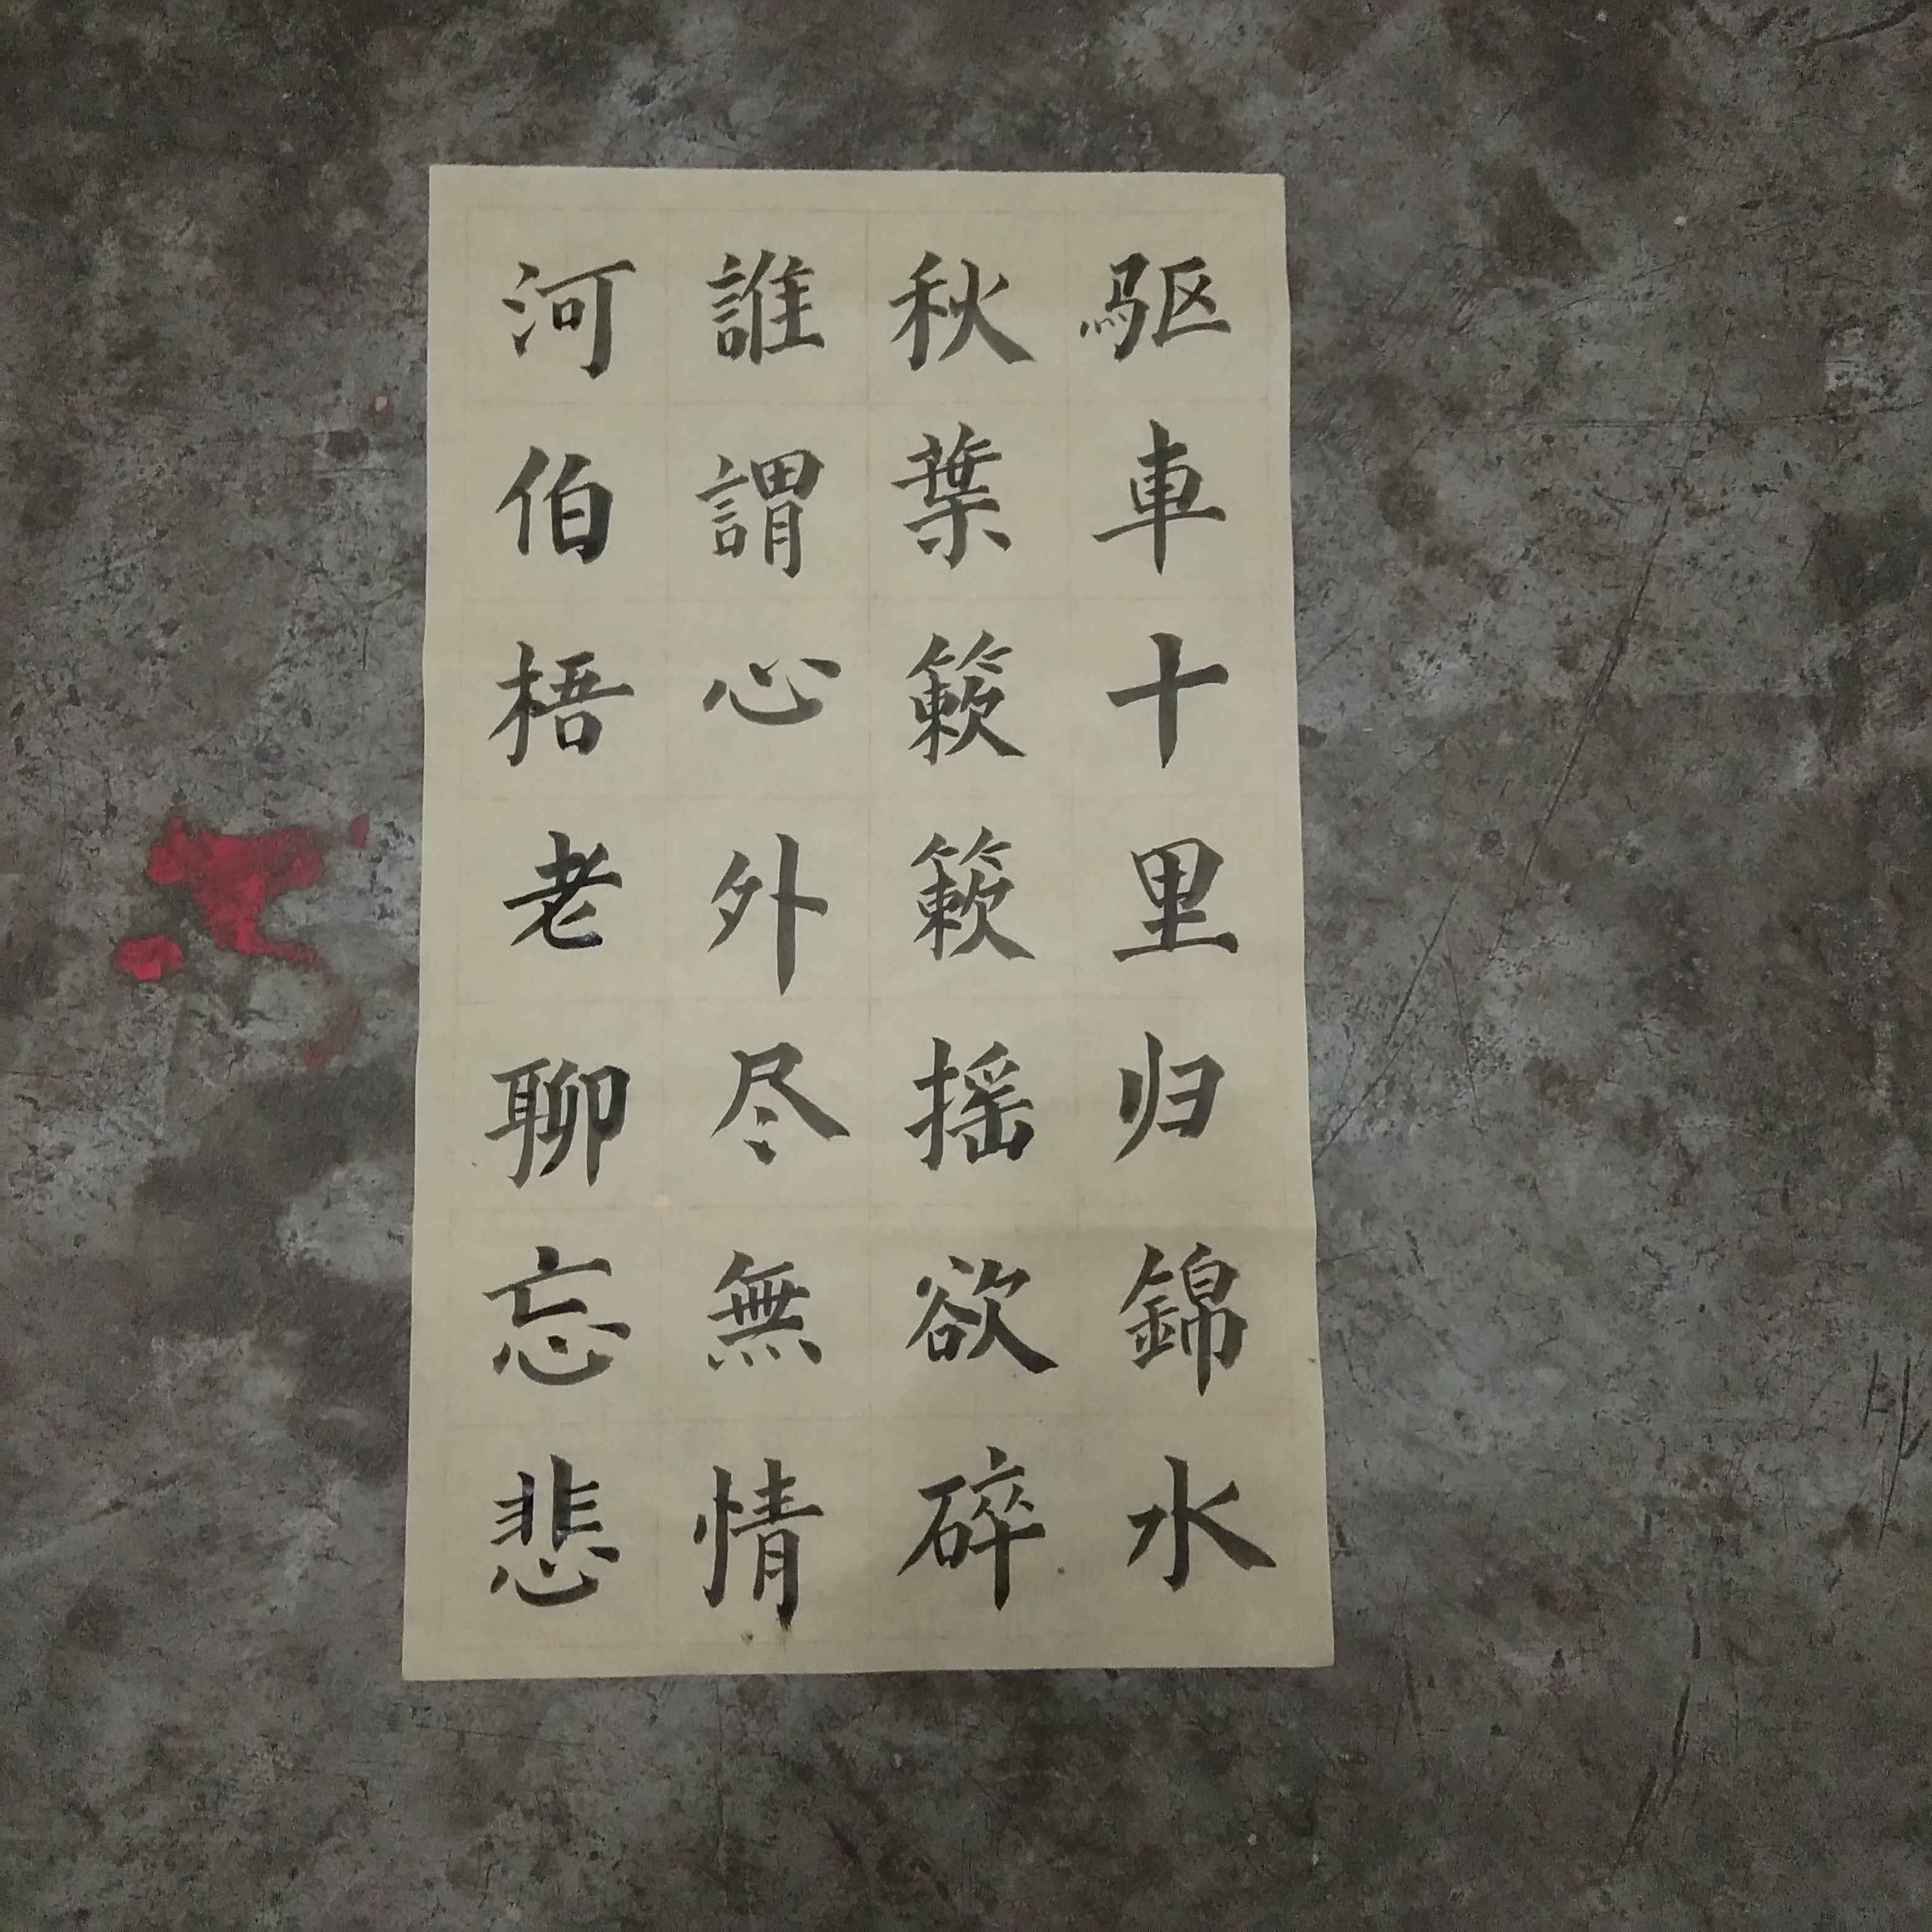 驱車十里归錦水
秋葉簌簌摇欲碎
誰謂心外尽無情
河伯梧老聊忘悲